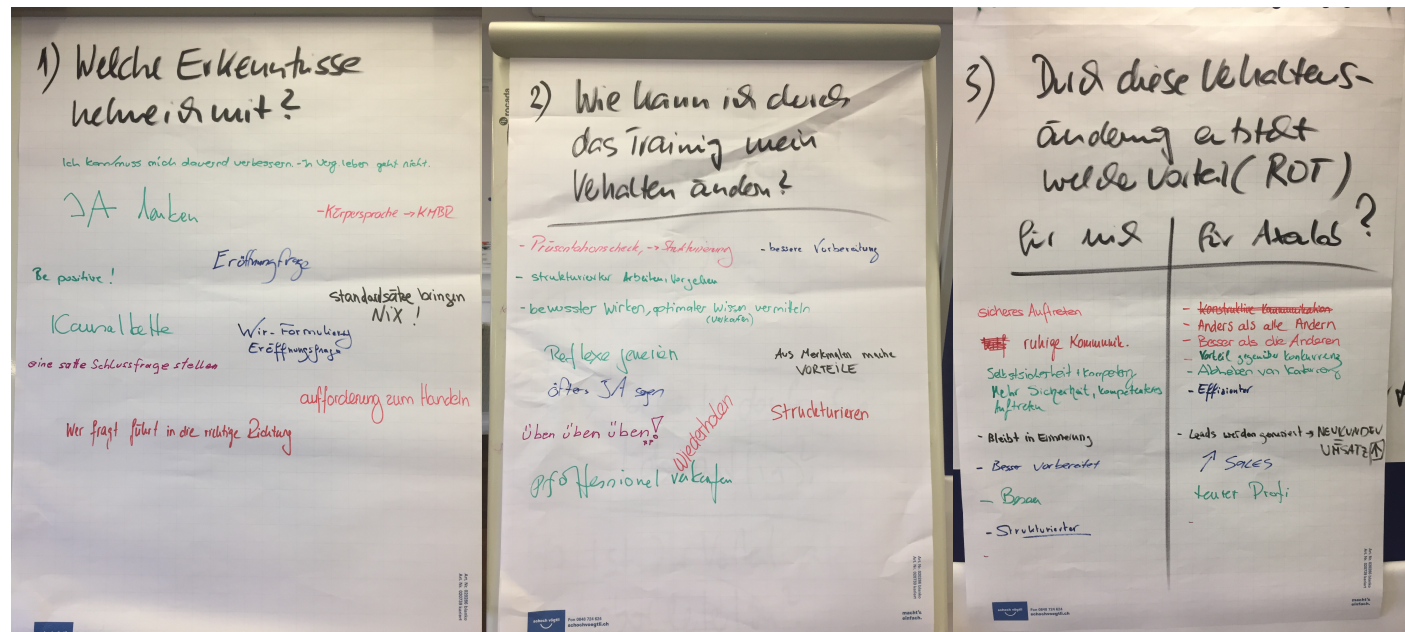 1) Welche Erkenntnisse
nehme ich mit?
Ich kann/muss mich dauernd verbessern. - In Verg. leben geht nicht.
JA denken
- Körpersprache → KMBR
Eröffnungsfrage
Be positive!
Standardsätze bringen
NiX!
Kausalkette
Wir-Formulierung
Eröffnungsfrage
eine satte Schlussfrage stellen
aufforderung zum Handeln
Wer fragt führt in die richtige Richtung
2) Wie kann ich durch
das Training mein
Verhalten ändern?
- Präsentationscheck, → Strukturierung
- bessere Vorbereitung
- strukturierter Arbeiten, Vorgehen
- bewusster Wirken, optimaler Wissen vermitteln
(Verkaufen)
Reflexe
Aus Merkmalen mache
VORTEILE
öfters JA sagen
Strukturieren
üben üben üben!
Wiederholen
proffessionel verkaufen
schoch vögtli
Fax 0848 724 624
schochvoegtli.ch
macht's
einfach.
3) Durch diese Verhaltens-
änderung entsteht
welche Vorteil (ROT)
für mich
für Axalos?
sicheres Auftreten
ruhige Kommunik.
Selbstsicherheit + Kompetenz
Mehr Sicherheit, kompetenteres
Auftreten
- Bleibt in Erinnerung
- Besser vorbereitet
- Besser
- Strukturierter
-
- Konstruktive Kommunikation
- Anders als alle Andern
- Besser als die Anderen
- Vorteil gegenüber Konkurrenz
- Abheben von Konkurrenz
- Effizienter
- Leads werden generiert → NEUKUNDEN
UMSATZ ↑
↑ SALES
teurer Profi
-
schoch vögtli
Fax 0848 724 624
schochvoegtli.ch
macht's
einfach.